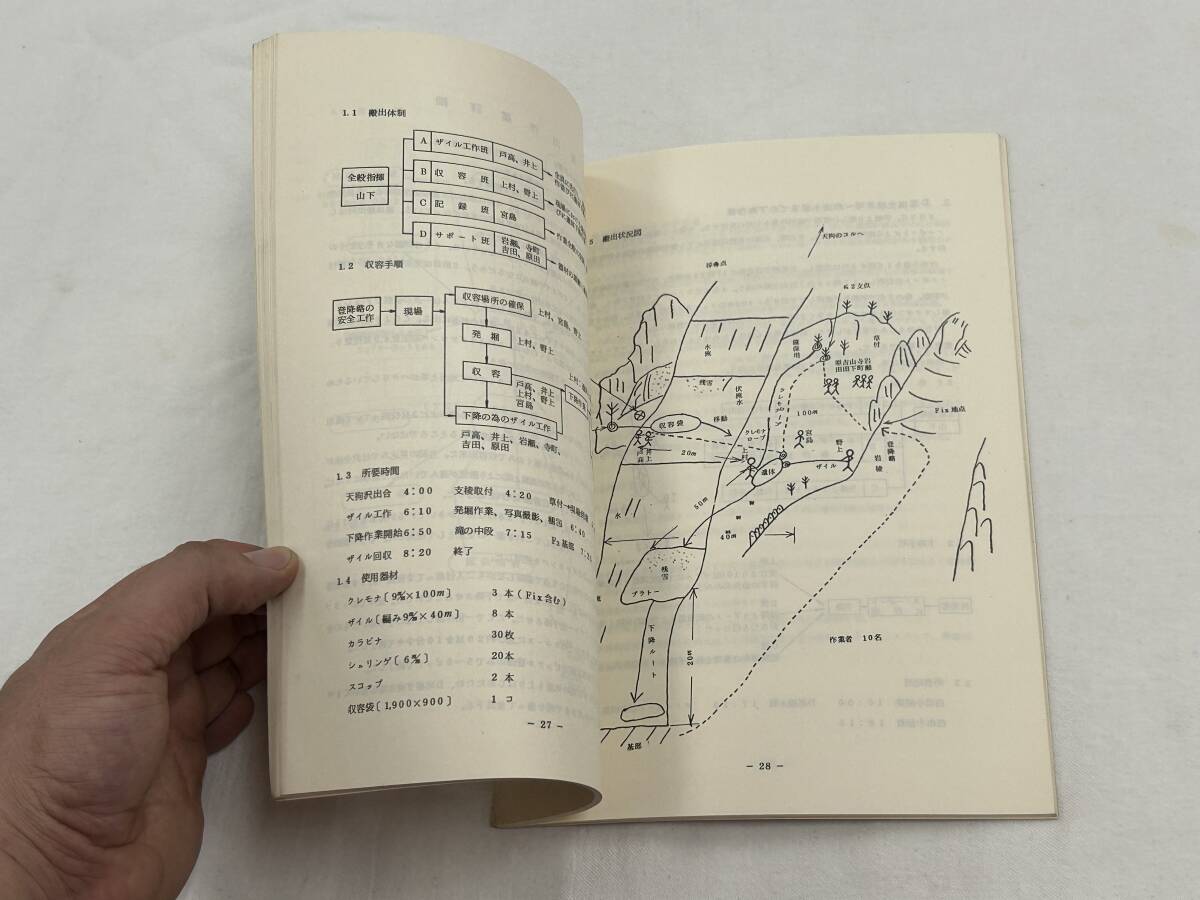 1.1 搬出体制
全般指揮
山下
A ザイル工作班 戸高、井上
B 収容班 上村、野上
C 記録班 宮島
D サポート班 岩瀬、寺町
吉田、原田
1.2 収容手順
登降略の
安全工作
現場
収容場所の確保 上村、宮島、野上
発堀 上村、野上
収容
戸高、井上
上村、野上
宮島
下降の為のザイル工作
戸高、井上、岩瀬、寺町、
吉田、原田
1.3 所要時間
天狗沢出合 4:00 支稜取付 4:20
ザイル工作 6:10 発堀作業、写真撮影、梱包 6:40
下降作業開始6:50 滝の中段 7:15 F₂基部
ザイル回収 8:20 終了
1.4 使用器材
クレモナ〔9㎜×100m〕 3本(Fix含む)
ザイル〔編み9㎜×40m〕 8本
カラビナ 30枚
シュリンゲ〔6㎜〕 20本
スコップ 2本
収容袋〔1,900×900〕 1コ
－27－
5 搬出状況図
天狗のコルへ
K2支点
水流
残雪
伏流水
確保用
クレモナロープ
草付
原吉山寺岩
田田下町瀬
100m
Fix地点
収容袋
移動
クレモナ
ロープ
宮島
野上
上村
井上
戸高
20m
遺体
ザイル
登降略
岩稜
50m
40m
水
残雪
プラトー
下降ルート
20m
基部
作業者 10名
－28－